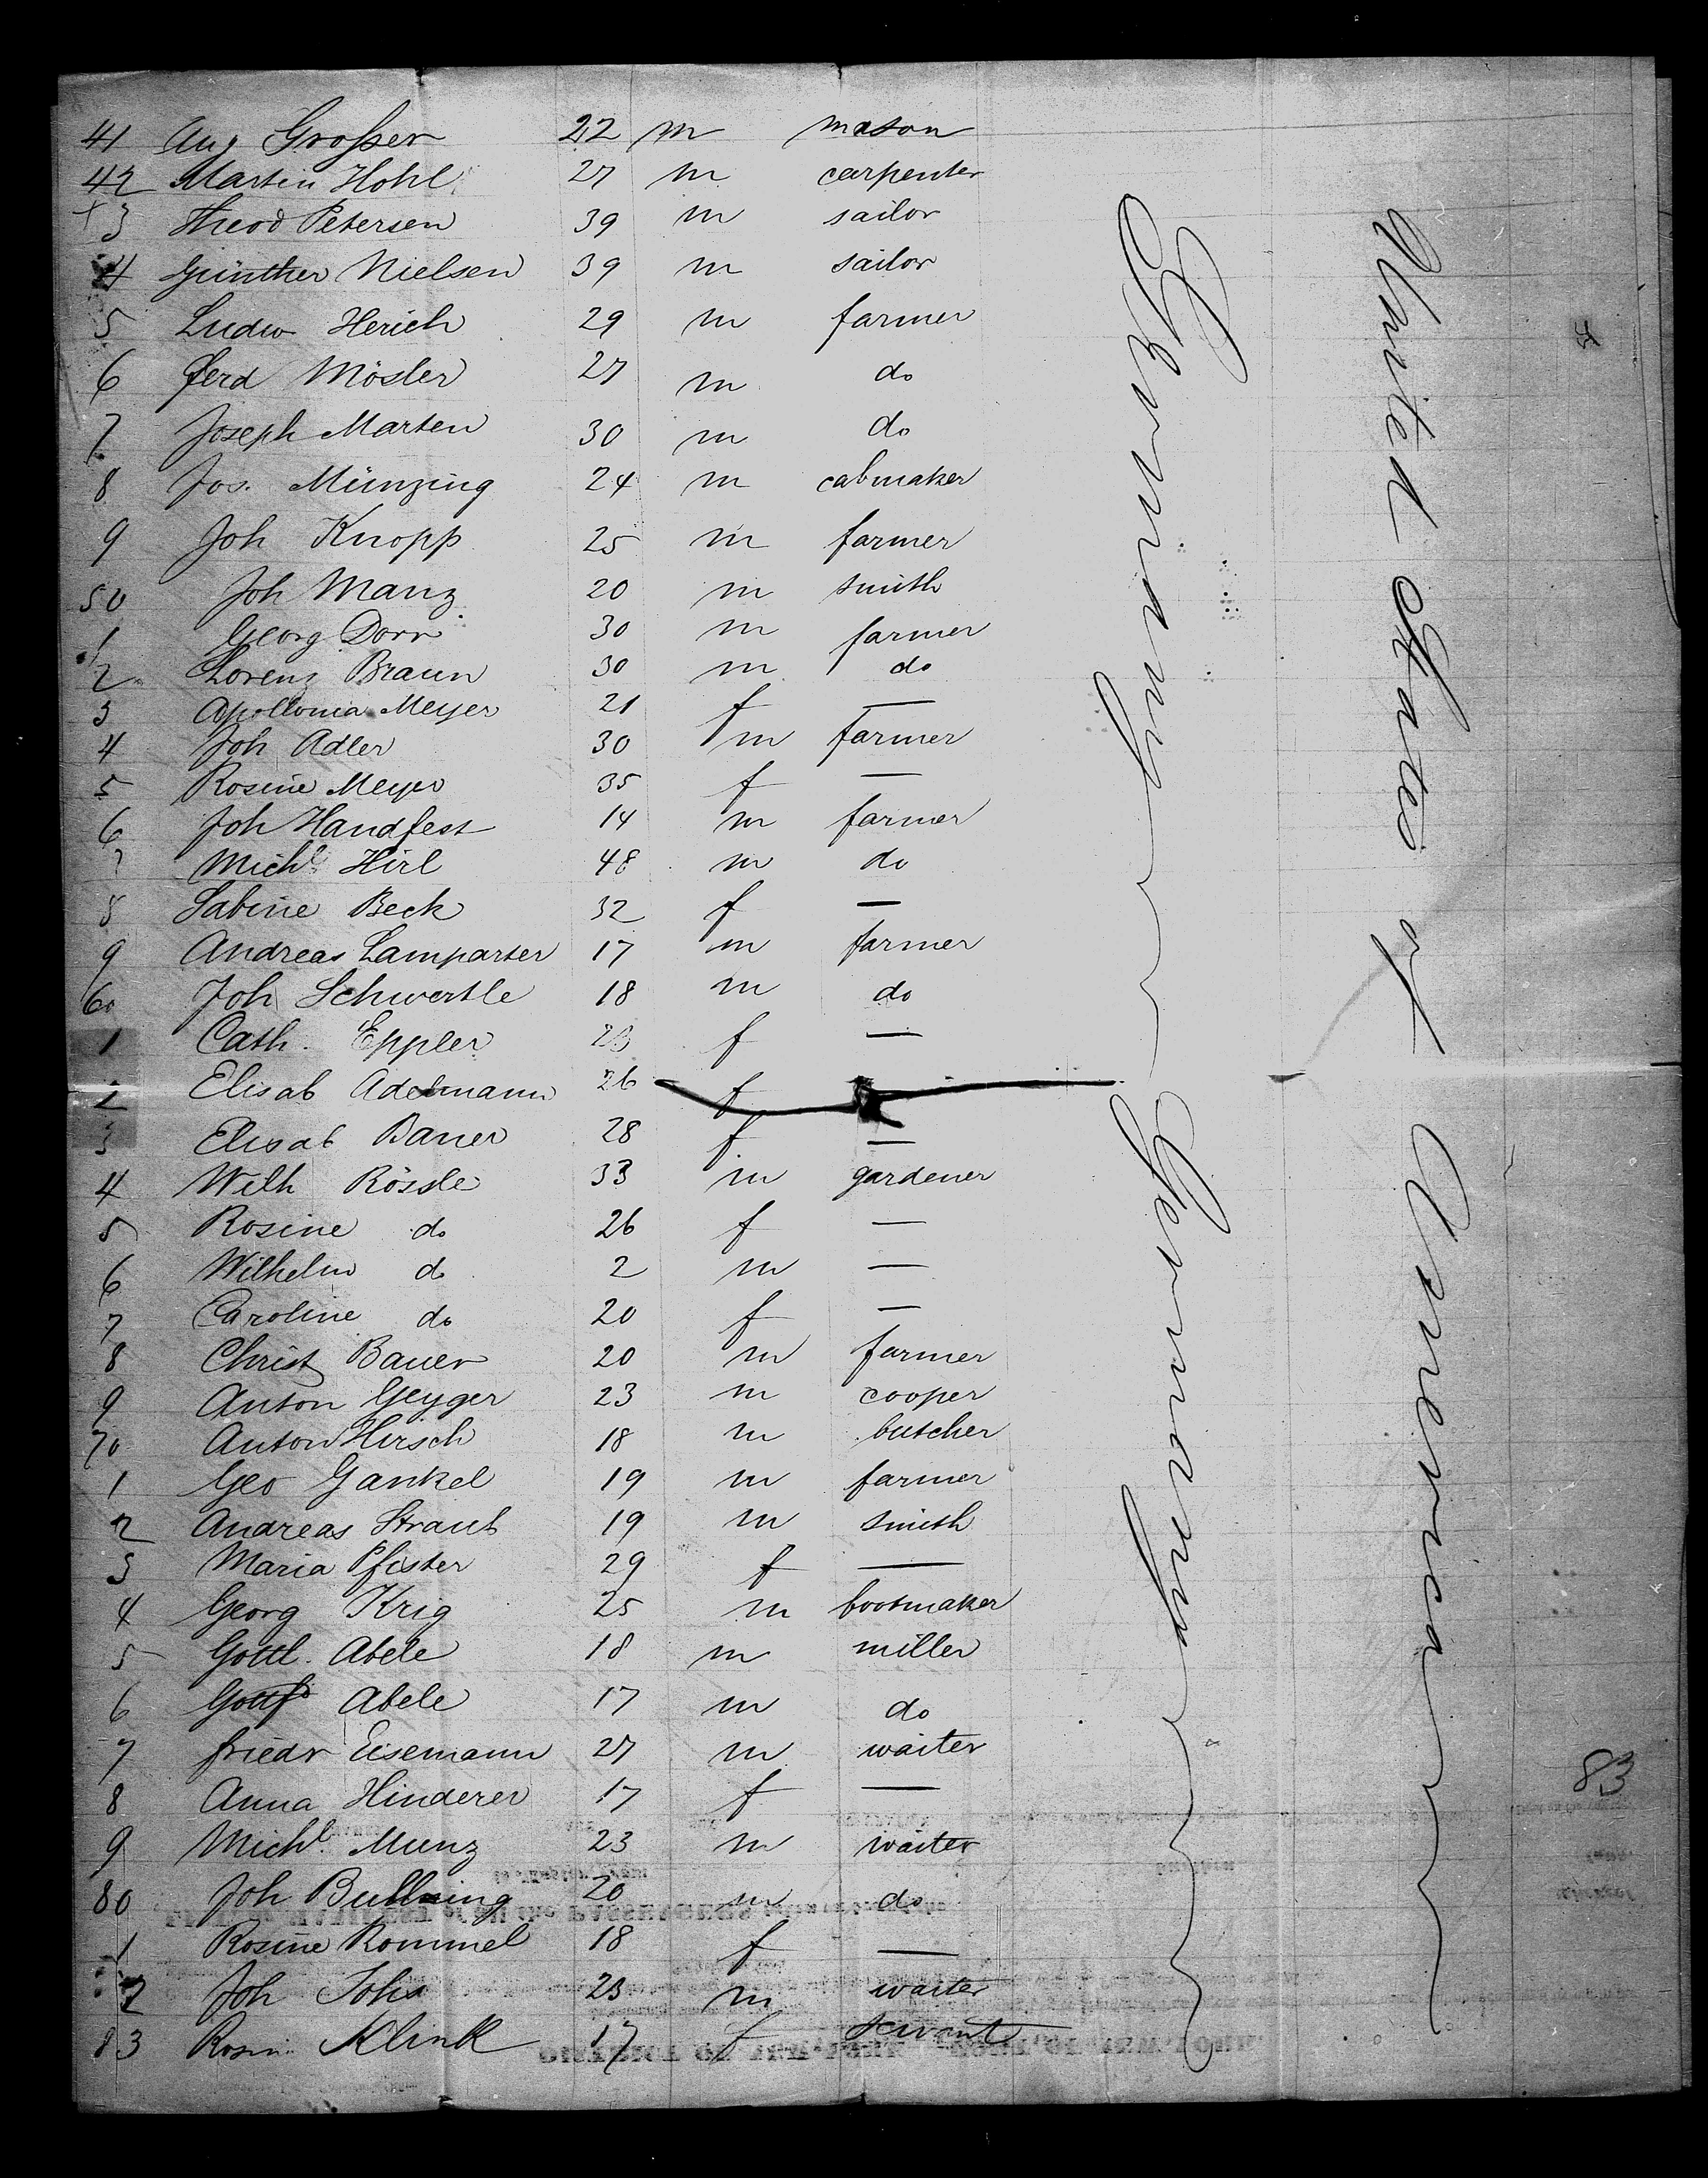 41 Aug Großer 22 m mason
42 Martin Hohl 27 m carpenter
3 Theod Petersen 39 m sailor
4 Günther Nielsen 39 m sailor
5 Ludw Herich 29 m farmer
6 Ferd Mösler 27 m do
7 Joseph Marten 30 m do
8 Jos. Münzing 24 m cabmaker
9 Joh Knopp 25 m farmer
50 Joh Manz 20 m smith
1 Georg Dorr 30 m farmer
2 Lorenz Braun 30 m do
3 Apollonia Meyer 21 f —
4 Joh Adler 30 m farmer
5 Rosine Meyer 35 f —
6 Joh Handfest 14 m farmer
7 Michl Hirl 48 m do
8 Sabine Beck 32 f —
9 Andreas Lamparter 17 m farmer
60 Joh Schwertle 18 m do
1 Cath. Eppler 23 f —
2 Elisab Adelmann 26 f
3 Elisab Bauer 28 f —
4 Wilh Rössle 33 m gardener
5 Rosine do 26 f —
6 Wilhelm do 2 m —
7 Caroline do 20 f —
8 Christ Bauer 20 m farmer
9 Anton Geyger 23 m cooper
70 Anton Hirsch 18 m butcher
1 Geo Gankel 19 m farmer
2 Andreas Straub 19 m smith
3 Maria Pfister 29 f —
4 Georg Krig 25 m bootmaker
5 Gottl. Abele 18 m miller
6 Gottfd Abele 17 m do
7 Friedr Eisemann 27 m waiter
8 Anna Hinderer 17 f —
9 Michl. Munz 23 m waiter
80 Joh Bullning 20 m do
1 Rosine Rommel 18 f —
2 Joh Johs 23 m waiter
83 Rosin Klink 17 f servant
Germany
Germany
United States of America
83